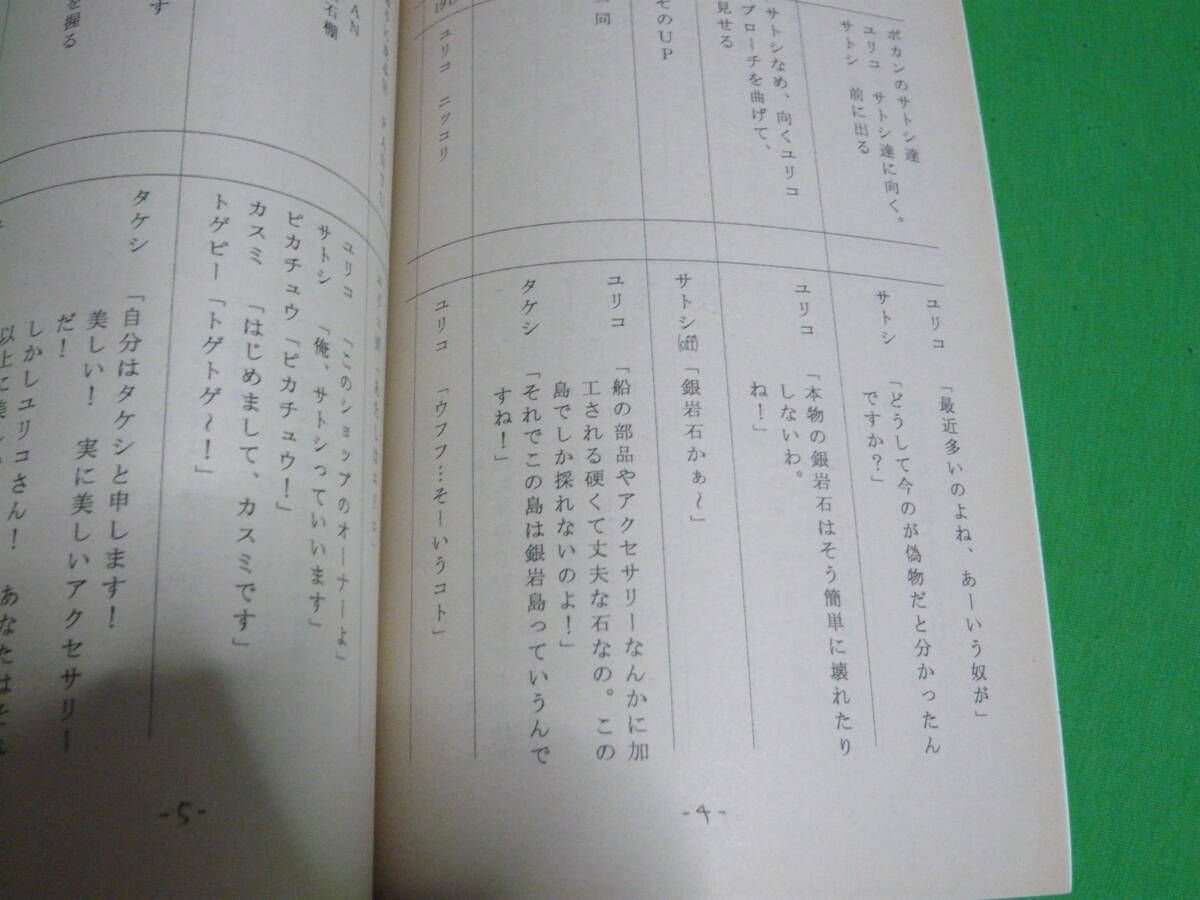 ポカンのサトシ達
ユリコ　サトシ達に向く。
サトシ　前に出る
サトシなめ、向くユリコ
ブローチを曲げて、
見せる
そのUP
一同
ユリコ　ニッコリ
ユリコ　「最近多いのよね、あーいう奴が」
サトシ　「どうして今のが偽物だと分かったん
ですか？」
ユリコ　「本物の銀岩石はそう簡単に壊れたり
しないわ。
ね！」
サトシ(off)「銀岩石かぁ～」
ユリコ　「船の部品やアクセサリーなんかに加
工される硬くて丈夫な石なの。この
島でしか採れないのよ！」
タケシ　「それでこの島は銀岩島っていうんで
すね！」
ユリコ　「ウフフ…そーいうコト」
-4-
AN
石棚
す
を握る
ユリコ　「このショップのオーナーよ」
サトシ　「俺、サトシっていいます」
ピカチュウ「ピカチュウ！」
カスミ　「はじめまして、カスミです」
トゲピー「トゲトゲ～！」
タケシ　「自分はタケシと申します！
美しい！　実に美しいアクセサリー
だ！
しかしユリコさん！　あなたはそれ
以上に美し
-5-